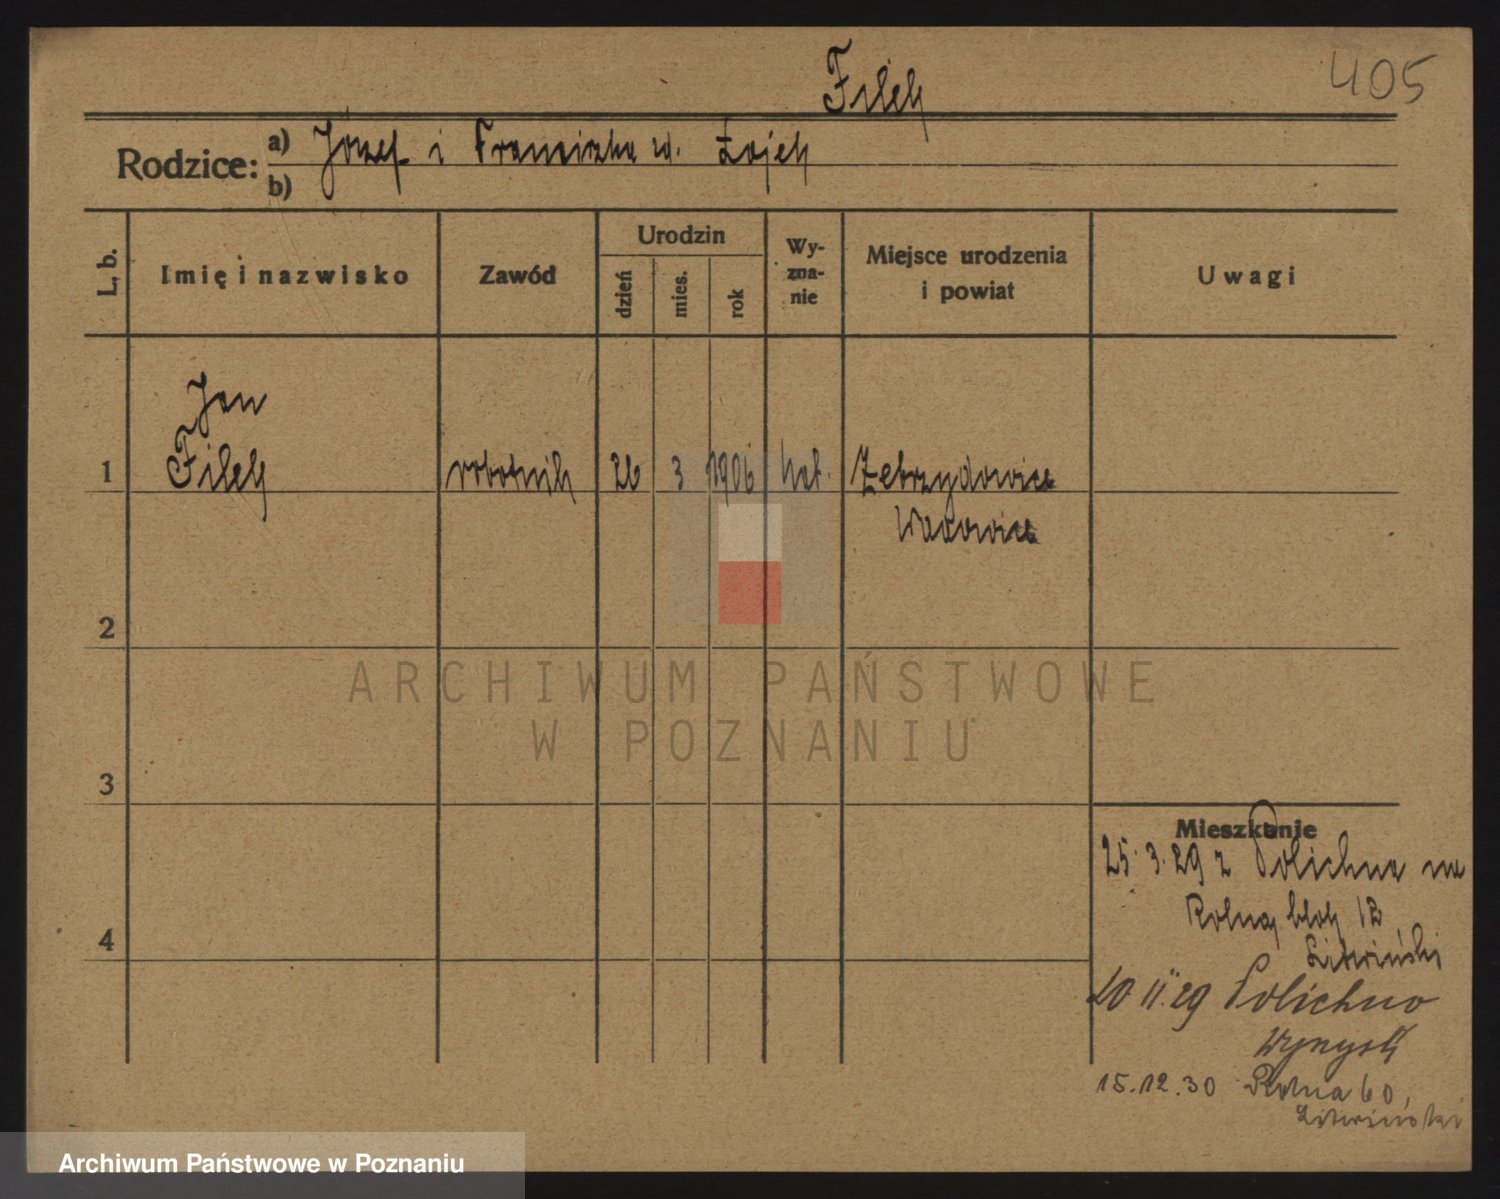 Filek
405
Rodzice:
a) Józef i Franciszka ur. Zając
b)
L. b.
Imię i nazwisko
Zawód
Urodzin
dzień
mies.
rok
Wy-
zna-
nie
Miejsce urodzenia
i powiat
Uwagi
Jan
1 Filek robotnik 26 3 1906 kat. Zebrzydowice
Wadowice
2
3
4
Mieszkanie
25.3.29 z Polichna na
Rolna blok 12
Litwiński
20 11.29 Polichno
Wyrzysk
15.12.30 Rolna 60,
Litwiński
ARCHIWUM PAŃSTWOWE
W POZNANIU
Archiwum Państwowe w Poznaniu